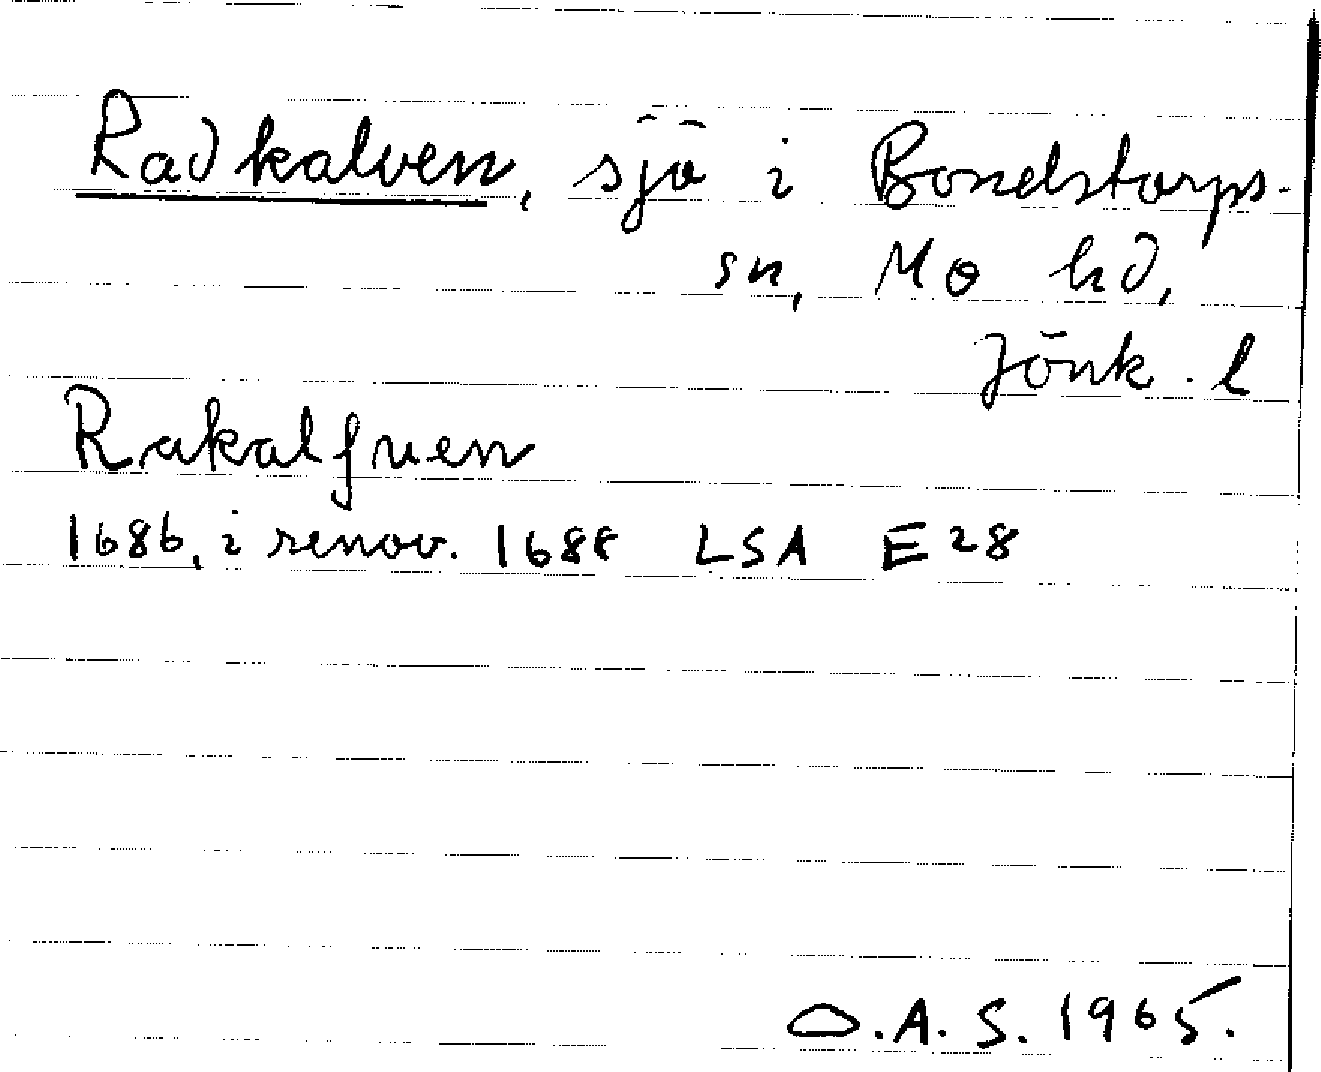 Radkalven, sjö i Bondstorps-
sn, Mo hd,
Jönk. l
Rakalfuen
1686, i renov. 1688 LSA E28
O.A.S. 1965.